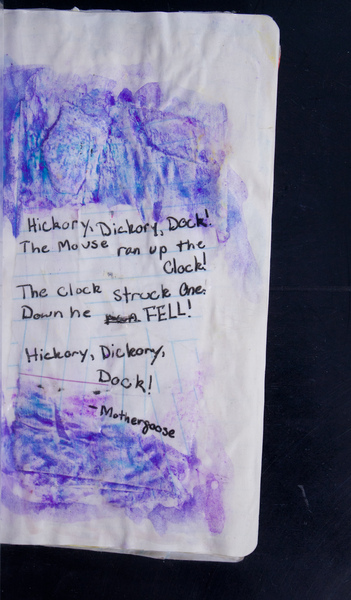 Hickory, Dickory, Dock!
The Mouse ran up the
Clock!
The clock struck One.
Down he FELL!
Hickory, Dickory,
Dock!
- Mothergoose